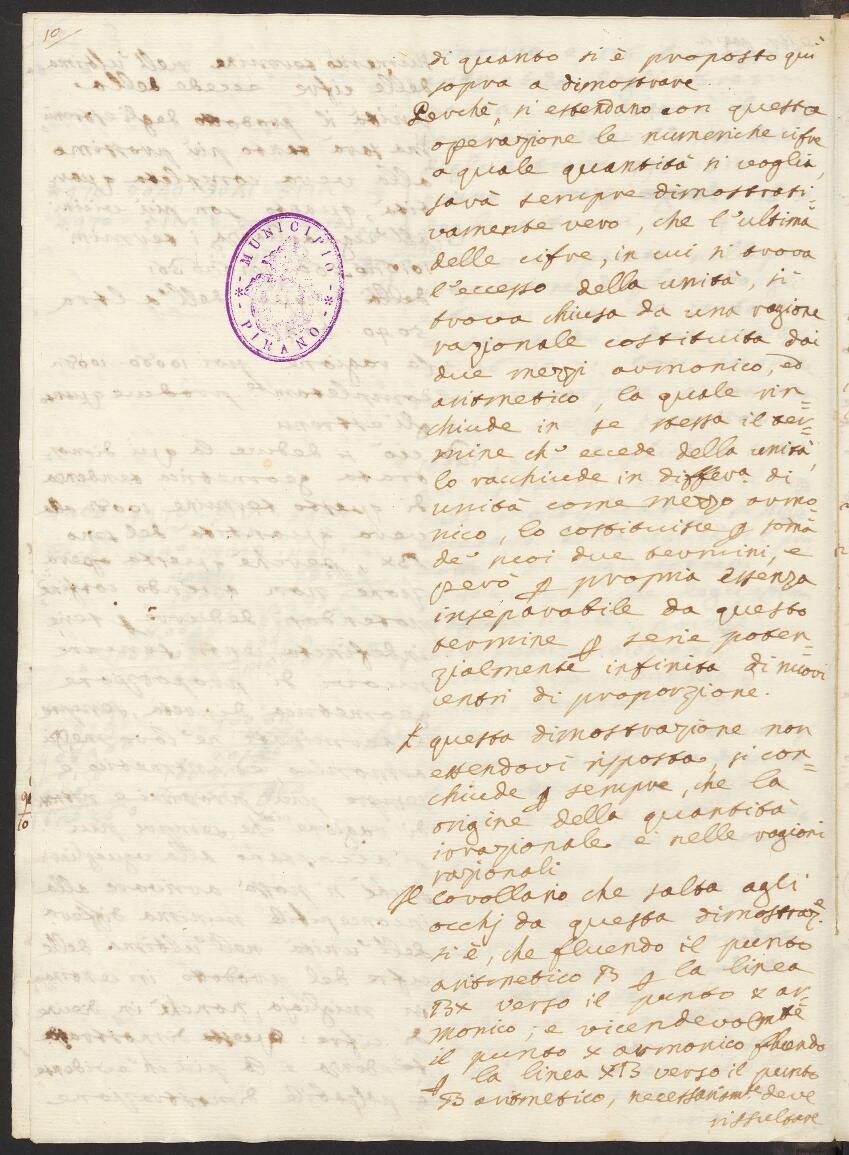 10
di quanto si è proposto quì
sopra a dimostrare.
Perchè, si estendano con questa
operazione le numeriche cifre
a quale quantità si voglia,
sarà sempre dimostrati=
vamente vero, che l'ultima
delle cifre, in cui si trova
l'eccesso della unità, si
trova chiusa da una ragione
razionale costituita dai
due mezzi armonico, ed
aritmetico, la quale rin=
chiude in se stessa il ter=
mine ch' eccede della unità,
lo racchiude in differa. di
unità come mezzo armo=
nico, lo costituisce p somã
de' suoi due termini, e
però p propria essenza
inseparabile da questo
termine p serie poten=
zialmente infinita di nuovi
centri di proporzione.
A questa dimostrazione non
essendovi risposta, si con=
chiude p sempre, che la
origine della quantità
irrazionale è nelle ragioni
razionali
Il corollario che salta agli
occhj da questa dimostraze.
si è, che fluendo il punto
aritmetico B p la linea
Bx verso il punto x ar=
monico; e vicendevolmte
il punto x armonico fluendo
p la linea xB verso il punto
B aritmetico, necessariamte deve
rissultare
MUNICIPIO
PIRANO